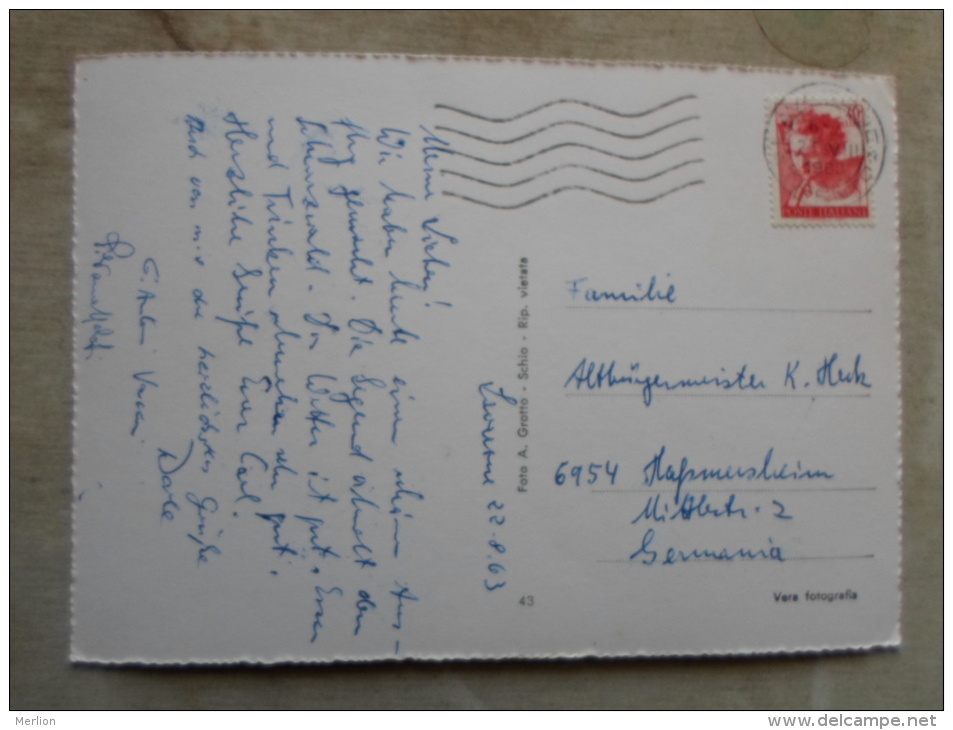 Meine Lieben!
Wir haben heute einen schönen Aus-
flug gemacht. Die Gegend ähnelt dem
Schwarzwald. Das Wetter ist gut. Essen
und Trinken ebenfalls sehr gut.
Herzliche Grüße Euer Carl.
Auch von mir die herzlichsten Grüße
Dorle
22.8.63
Foto A. Grotto - Schio - Rip. vietata
43
POSTE ITALIANE
Familie
Altbürgermeister K. Heck
6954 Haßmersheim
Mittlestr. 2
Germania
Vera fotografia
Merlion
www.delcampe.net